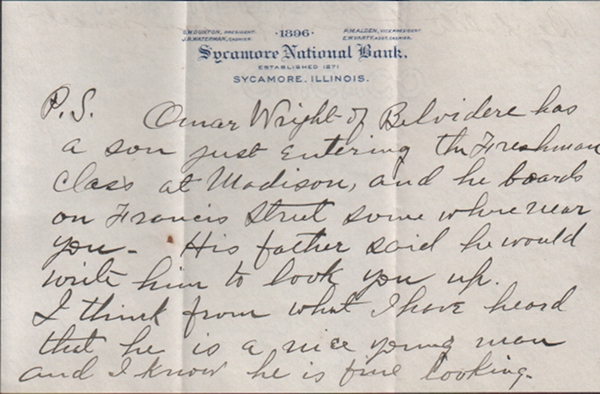 S.W. DUNTON, PRESIDENT.
J.B. WATERMAN, CASHIER.
·1896·
P.M. ALDEN, VICE PRESIDENT
E.W. VARTY, ASST. CASHIER.
Sycamore National Bank.
ESTABLISHED 1871
SYCAMORE, ILLINOIS.
P.S. Omar Wright of Belvidere has
a son just entering the Freshman
class at Madison, and he boards
on Francis Street some where near
you - His father said he would
write him to look you up.
I think from what I have heard
that he is a nice young man
and I know he is fine looking.